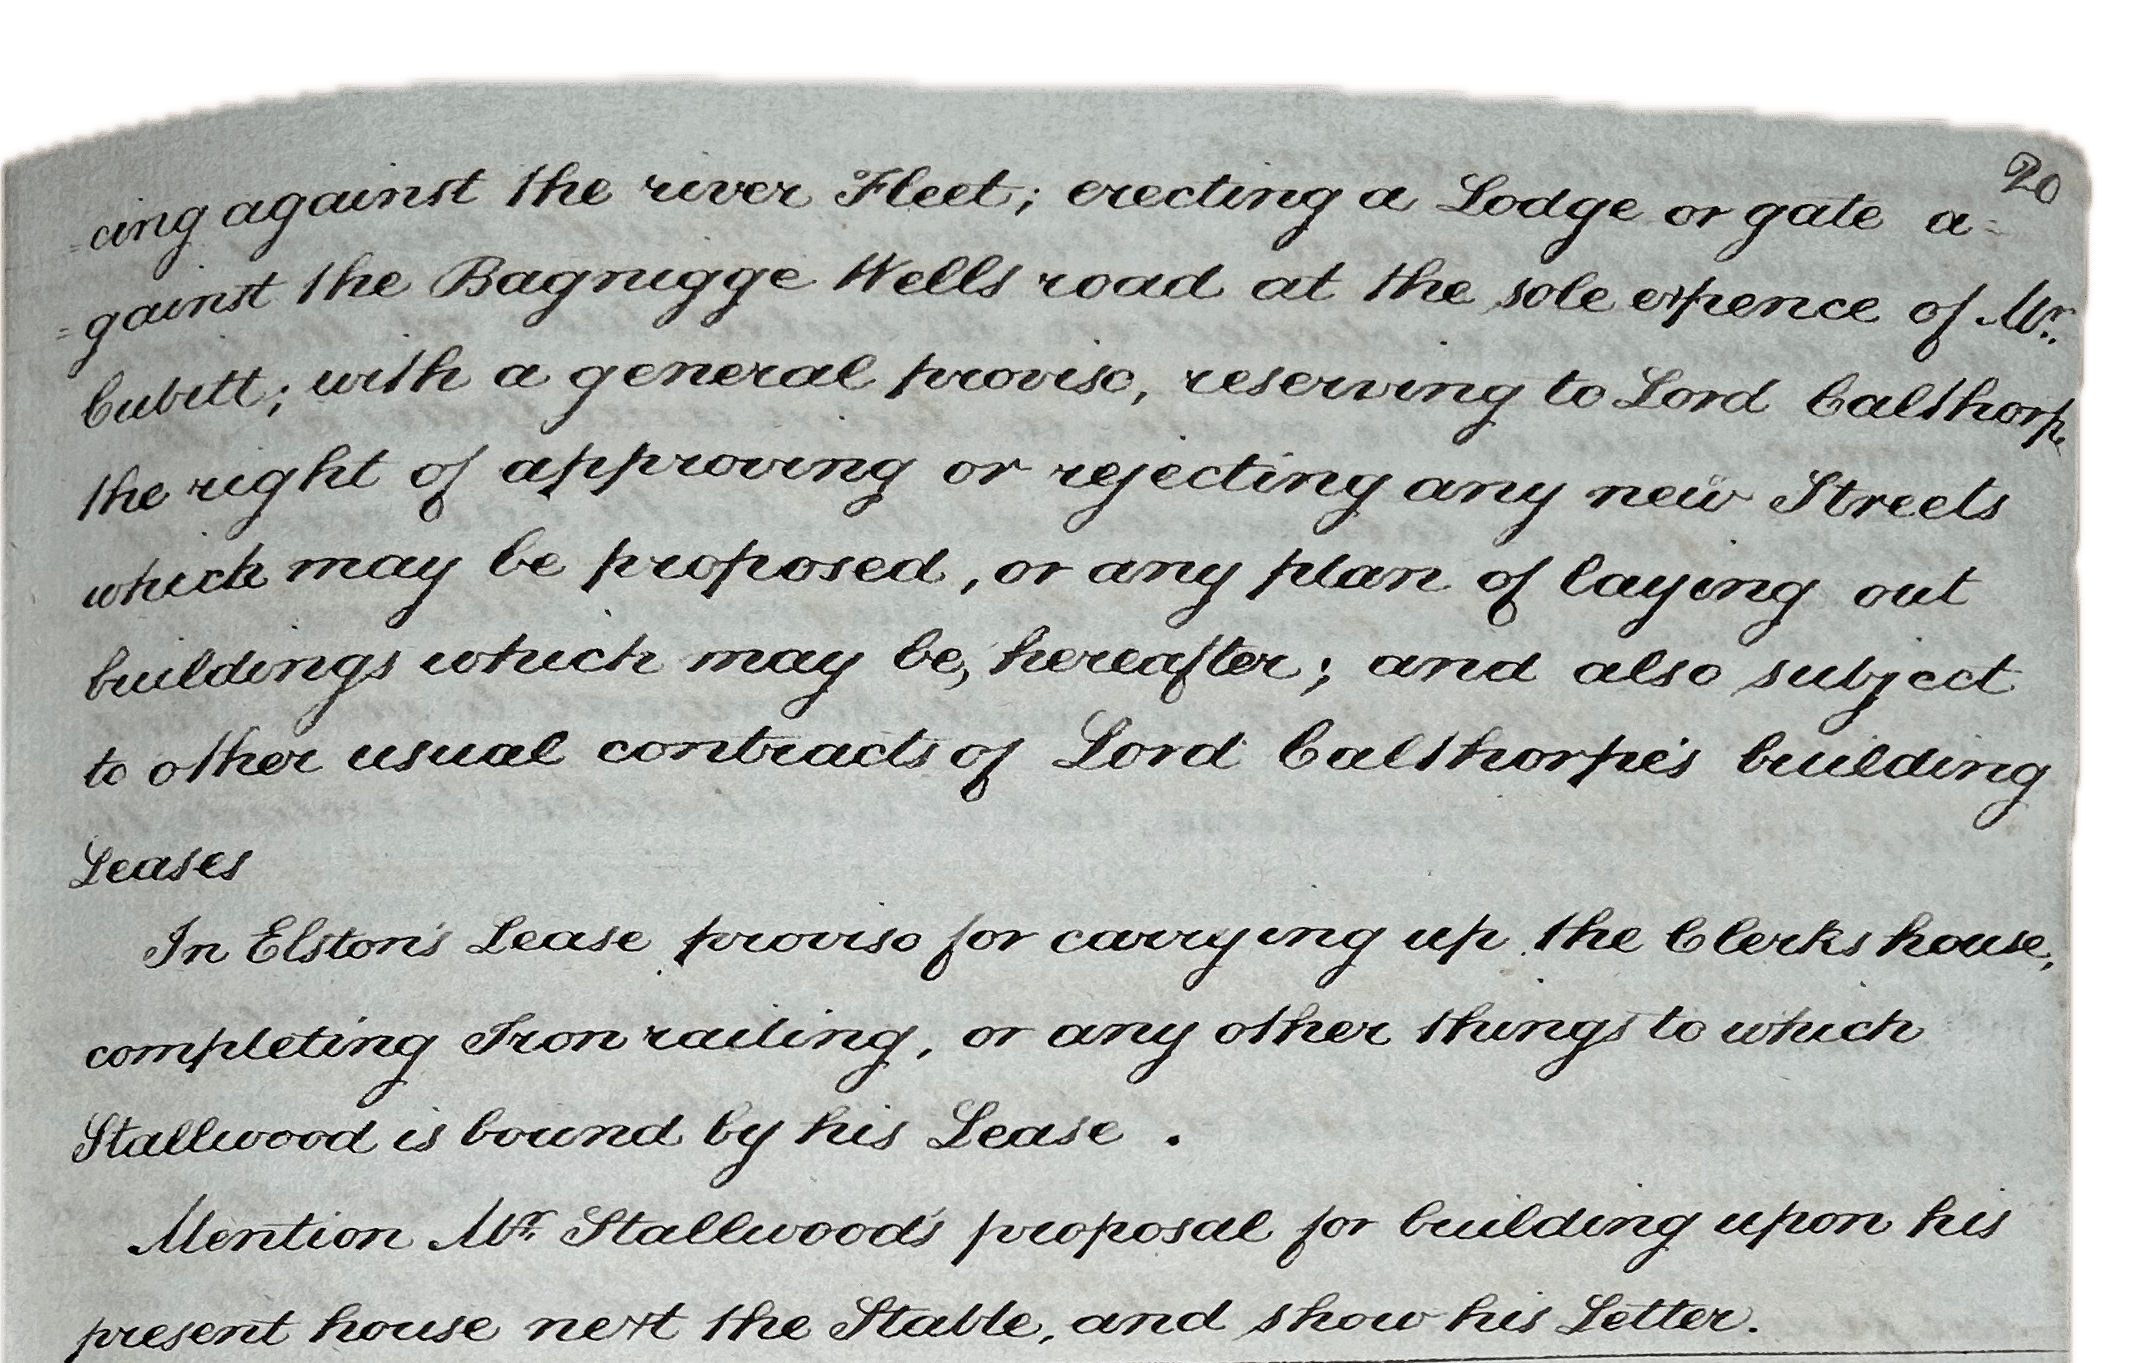 20
=cing against the river Fleet; erecting a Lodge or gate a=
=gainst the Bagnigge Wells road at the sole expence of Mr.
Cubitt; with a general proviso, reserving to Lord Calthorpe
the right of approving or rejecting any new Streets
which may be proposed, or any plan of laying out
buildings which may be, hereafter; and also subject
to other usual contracts of Lord Calthorpe's building
Leases
In Elston's Lease proviso for carrying up the Clerks house,
completing Iron railing, or any other things to which
Stallwood is bound by his Lease.
Mention Mr. Stallwood's proposal for building upon his
present house next the Stable, and show his Letter.